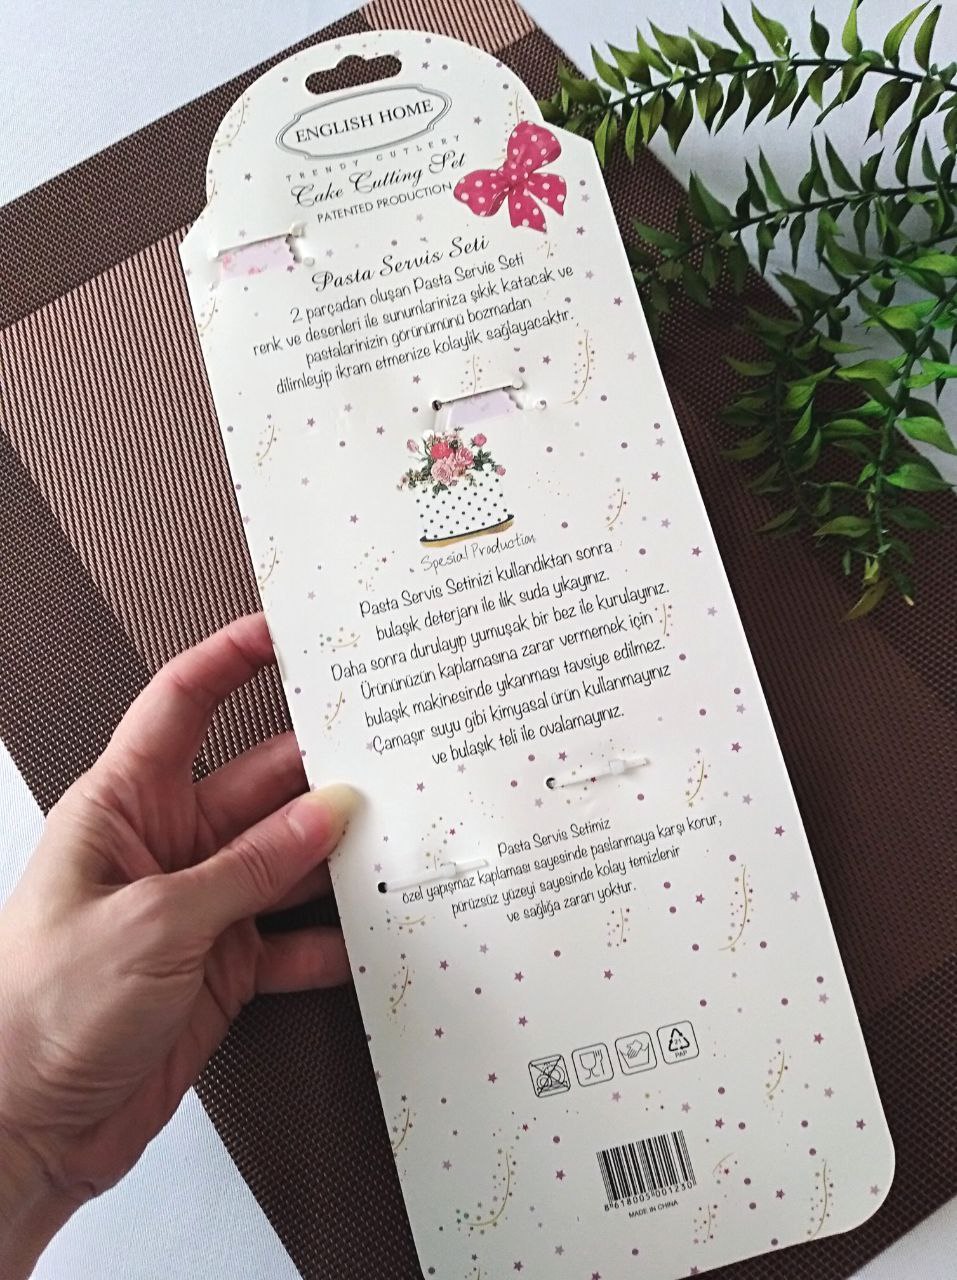 ENGLISH HOME
TRENDY CUTLERY
Cake Cutting Set
PATENTED PRODUCTION
Pasta Servis Seti
2 parçadan oluşan Pasta Servie Seti
renk ve desenleri ile sunumlariniza şıkık katacak ve
pastalarinizin görünümünü bozmadan
dilimleyip ikram etmenize kolaylik sağlayacaktır.
Spesial Production
Pasta Servis Setinizi kullandıktan sonra
bulaşık deterjanı ile ılık suda yıkayınız.
Daha sonra durulayıp yumuşak bir bez ile kurulayınız.
Ürününüzün kaplamasına zarar vermemek için
bulaşık makinesinde yıkanması tavsiye edilmez.
Çamaşır suyu gibi kimyasal ürün kullanmayınız
ve bulaşık teli ile ovalamayınız.
Pasta Servis Setimiz
özel yapışmaz kaplaması sayesinde paslanmaya karşı korur,
pürüzsüz yüzeyi sayesinde kolay temizlenir
ve sağlığa zararı yoktur.
21
PAP
8 618005 001230
MADE IN CHINA